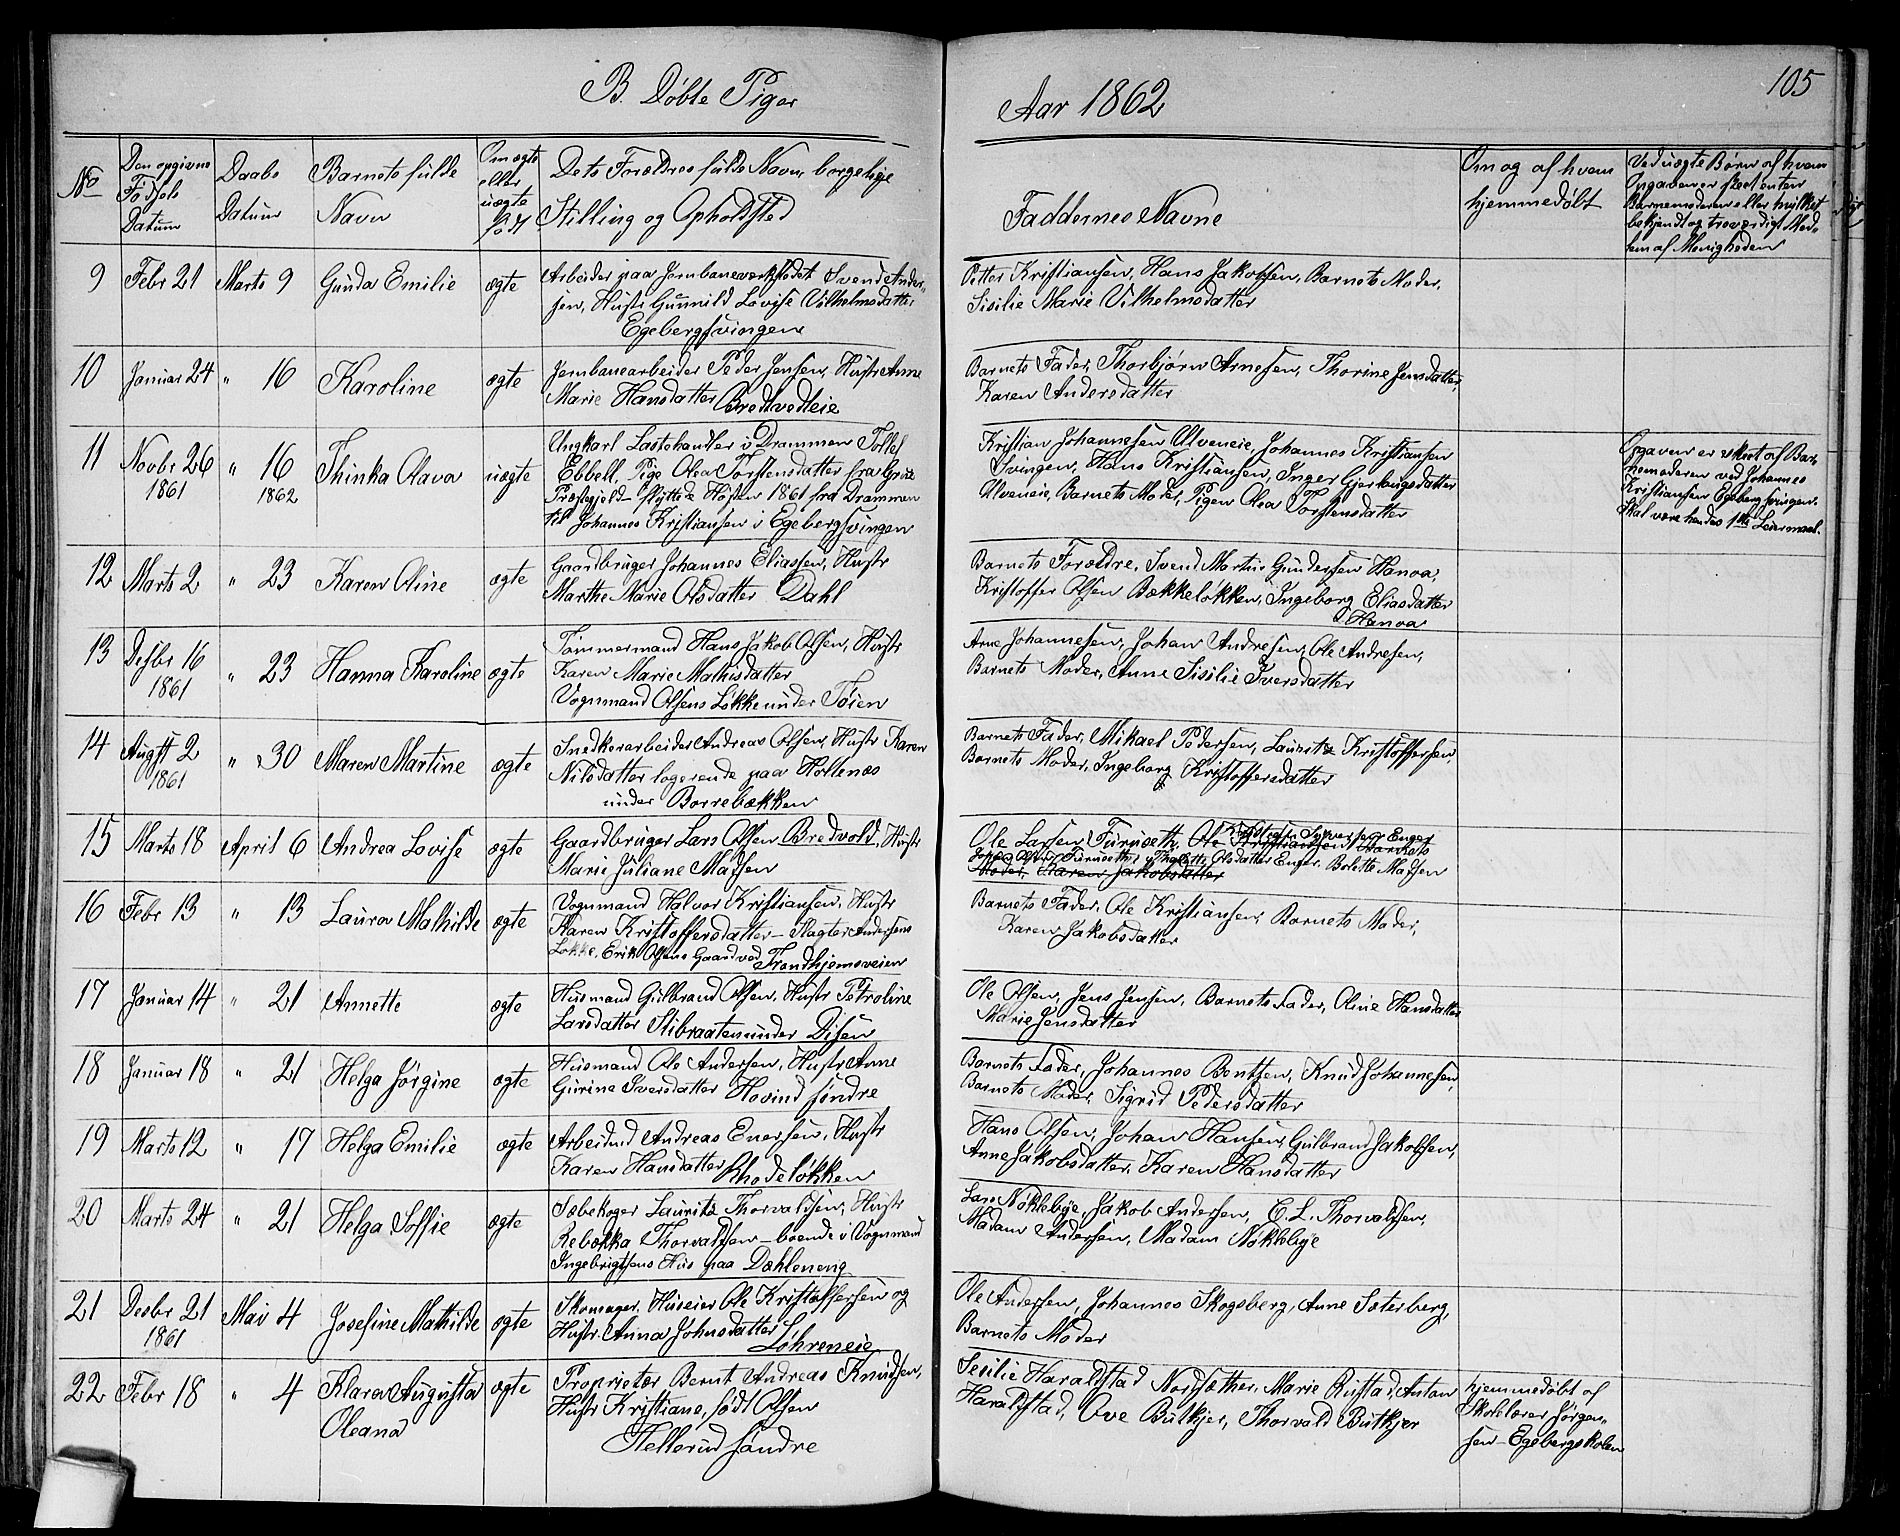 B. Døbte Piger
Aar 1862
105
No
Den opgivne
Fødsels
Datum
Daabs
Datum
Barnets fulde
Navn
Om ægte
eller
uægte
født
Dets Forældres fulde Navn, borgerlige
Stilling og Opholdsted
Faddernes Navne
Om og af hvem
hjemmedøbt
Ved uægte Børn af hvem
Opgaven er skeet enten
Barnemoderen eller hvilket
bekjendt og troværdigt Med-
lem af Menigheden
9 Febr 21 Marts 9 Gunda Emilie ægte
Arbeider paa Jernbaneværkstedet Svend Ander-
sen, Hustr Gunnild Lovise Vilhelmsdatter
Egebergsvingen
Petter Kristiansen, Hans Jakobsen, Barnets Moder,
Sisilie Marie Vilhelmsdatter
10 Januar 24 " 16 Karoline ægte
Jernbanearbeider Peder Jensen, Hustr Anne
Marie Hansdatter Bredtvedteie
Barnets Fader, Thorbjørn Arnesen, Thorine Jensdatter,
Karen Andersdatter
11 Novbr 26
1861
" 16
1862
Thinka Olava uægte
Ungkarl Lastehandler i Drammen Tollef
Ebbell, Pige Olea Torstensdatter fra
Præstegjeld flyttede Høsten 1861 fra Drammen
til Johannes Kristiansen i Egebergsvingen
Kristian Johannesen Ulveneie, Johannes Kristiansen
Svingen, Hans Kristiansen, Inger Gjerlaugsdatter
Ulveneie, Barnets Moder, Pigen Olea Torstensdatter
Opgaven er skeet af Bar-
nemoderen ved Johannes
Kristiansen Egebergsvingen.
Skal være hendes 1ste Leiermaal.
12 Marts 2 " 23 Karen Oline ægte
Gaardbruger Johannes Eliassen, Hustr
Marthe Marie Olsdatter Dahl
Barnets Forældre, Svend Martin Gundersen Hanoa,
Kristoffer Olsen Bækkeløkken, Ingeborg Eliasdatter
Hanoa
13 Desbr 16
1861
" 23 Hanna Karoline ægte
Tømmermand Hans Jakob Olsen, Hustr
Karen Marie Mathisdatter
Vognmand Olsens Løkke under Tøien
Arne Johannesen, Johan Andresen, Ole Andresen,
Barnets Moder, Anne Sisilie Iversdatter
14 Augst 2
1861
" 30 Maren Martine ægte
Snedkerarbeider Andreas Olsen, Hustr Karen
Nilsdatter logerende paa Hollenæs
under Borrebækken
Barnets Fader, Mikael Pedersen, Lauritz Kristoffersen,
Barnets Moder, Ingeborg Kristoffersdatter
15 Marts 18 April 6 Andrea Lovise ægte
Gaardbruger Lars Olsen Bredvold, Hustr
Marie Juliane Madsen
Ole Larsen Furuseth, Ole Kristiansen Barnets
Enger
Furuseth, Olsdatter Enger, Bolette Madsen
Moder, Karen Jakobsdatter
16 Febr 13 " 13 Laura Mathilde ægte
Vognmand Halvor Kristiansen, Hustr
Karen Kristoffersdatter - Slagter Andersens
Løkke, Erik Olsens Gaard ved Trondhjemsveien
Barnets Fader, Ole Kristiansen, Barnets Moder,
Karen Jakobsdatter
17 Januar 14 " 21 Annette ægte
Husmand Gulbrand Olsen, Hustr Petroline
Larsdatter Stibraaten under Disen
Ole Olsen, Jens Jensen, Barnets Fader, Oline Hansdatter
Marie Jensdatter
18 Januar 18 " 21 Helga Jørgine ægte
Husmand Ole Andersen, Hustr Anne
Gurine Iversdatter Hovind søndre
Barnets Fader, Johannes Bentsen, Knud Johannesen,
Barnets Moder, Sigrid Pedersdatter
19 Marts 12 " 17 Helga Emilie ægte
Arbeidsd Andreas Enersen, Hustr
Karen Hansdatter Rhodeløkken
Hans Olsen, Johan Hansen, Gulbrand Jakobsen,
Anne Jakobsdatter, Karen Hansdatter
20 Marts 24 " 21 Helga Soffie ægte
Sæbekoger Lauritz Thorvaldsen, Hustr
Rebekka Thorvaldsen - boende i Vognmand
Ingebrigtsens Hus paa Dæhleneng
Lars Nøklebye, Jakob Andersen, C. L. Thorvaldsen,
Madam Andersen, Madam Nøklebye
21 Desbr 21
1861
Mai 4 Josefine Mathilde ægte
Skomager, Huseier Ole Kristoffersen og
Hustr Anna Johnsdatter
Løhreneie
Ole Andersen, Johannes Skogsberg, Anne Sæterberg,
Barnets Moder
22 Febr 18 " 4 Klara Augusta
Oleana
ægte
Proprietær Bernt Andreas Knudsen,
Hustr Kristiane, født Olsen
Hellerud søndre
Sesilie Haraldstad Nordsæther, Marie Rustad, Anton
Haraldstad, Ove Butkjer, Thorvald Butkjer
hjemmedøbt af
Skolelærer Jørgen-
sen - Egebergskolen